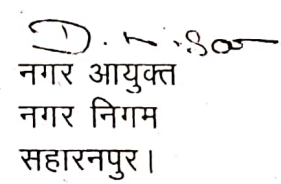 नगर आयुक्त
नगर निगम
सहारनपुर।